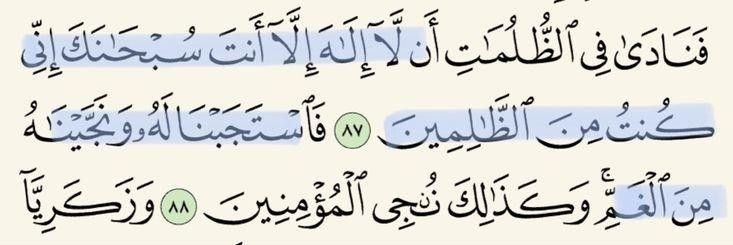 فَنَادَىٰ فِى ٱلظُّلُمَـٰتِ أَن لَّآ إِلَـٰهَ إِلَّآ أَنتَ سُبْحَـٰنَكَ إِنِّى
كُنتُ مِنَ ٱلظَّـٰلِمِينَ ٨٧ فَٱسْتَجَبْنَا لَهُۥ وَنَجَّيْنَـٰهُ
مِنَ ٱلْغَمِّ ۚ وَكَذَٰلِكَ نُـۨجِى ٱلْمُؤْمِنِينَ ٨٨ وَزَكَرِيَّآ